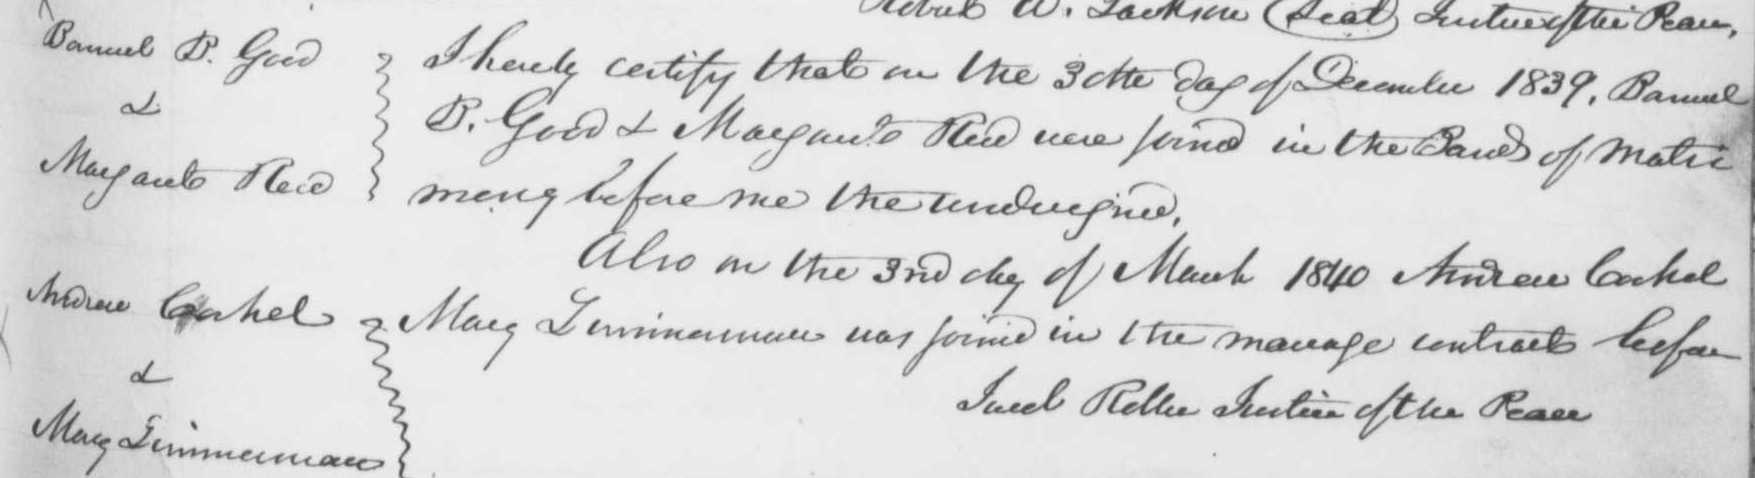 W. Jackson (Seal) Justice of the Peace,
Samuel B. Good
&
Margaret Reed
I hereby certify that on the 30the day of December 1839, Samuel
B. Good & Margaret Reed were joined in the Bands of Matri
mony before me the undersigned,
Also on the 3rd day of March 1840 Andrew
Andrew
&
Mary Zimmerman
Mary Zimmerman was joined in the marriage contract before
Justice of the Peace